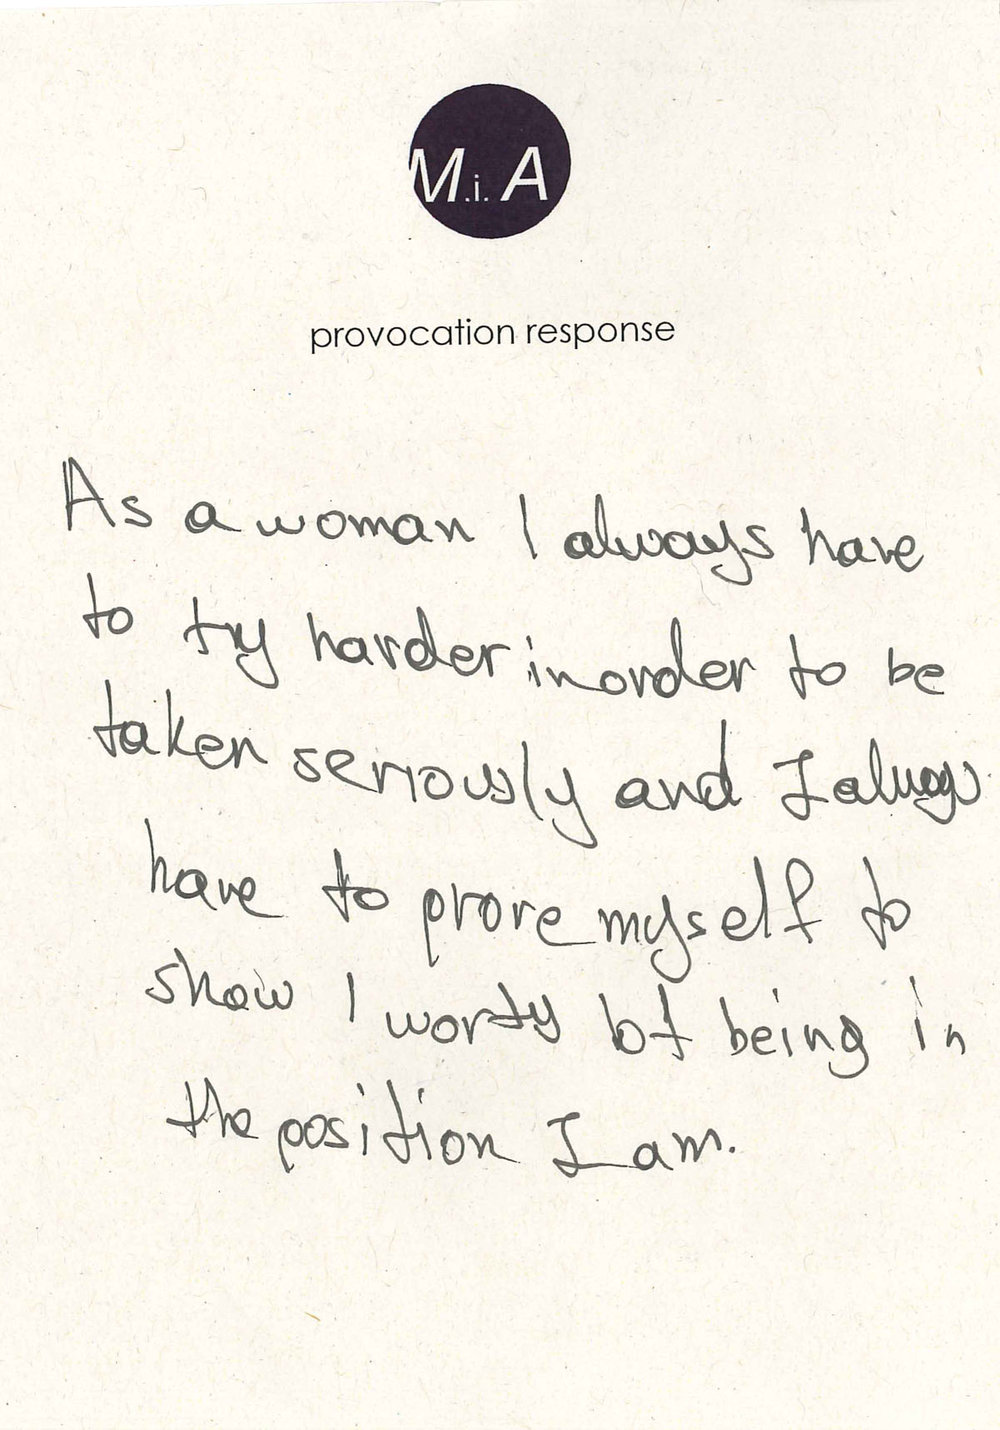 M.i.A
provocation response
As a woman I always have
to try harder in order to be
taken seriously and I always
have to prove myself to
show I worty of being in
the position I am.